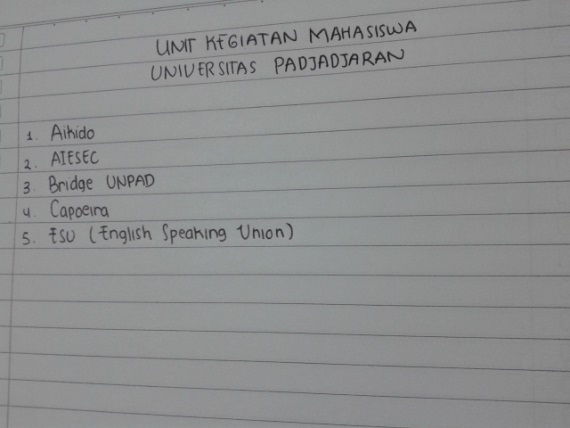 UNIT KEGIATAN MAHASISWA
UNIVERSITAS PADJADJARAN
1. Aikido
2. AIESEC
3. Bridge UNPAD
4. Capoeira
5. ESU (English Speaking Union)